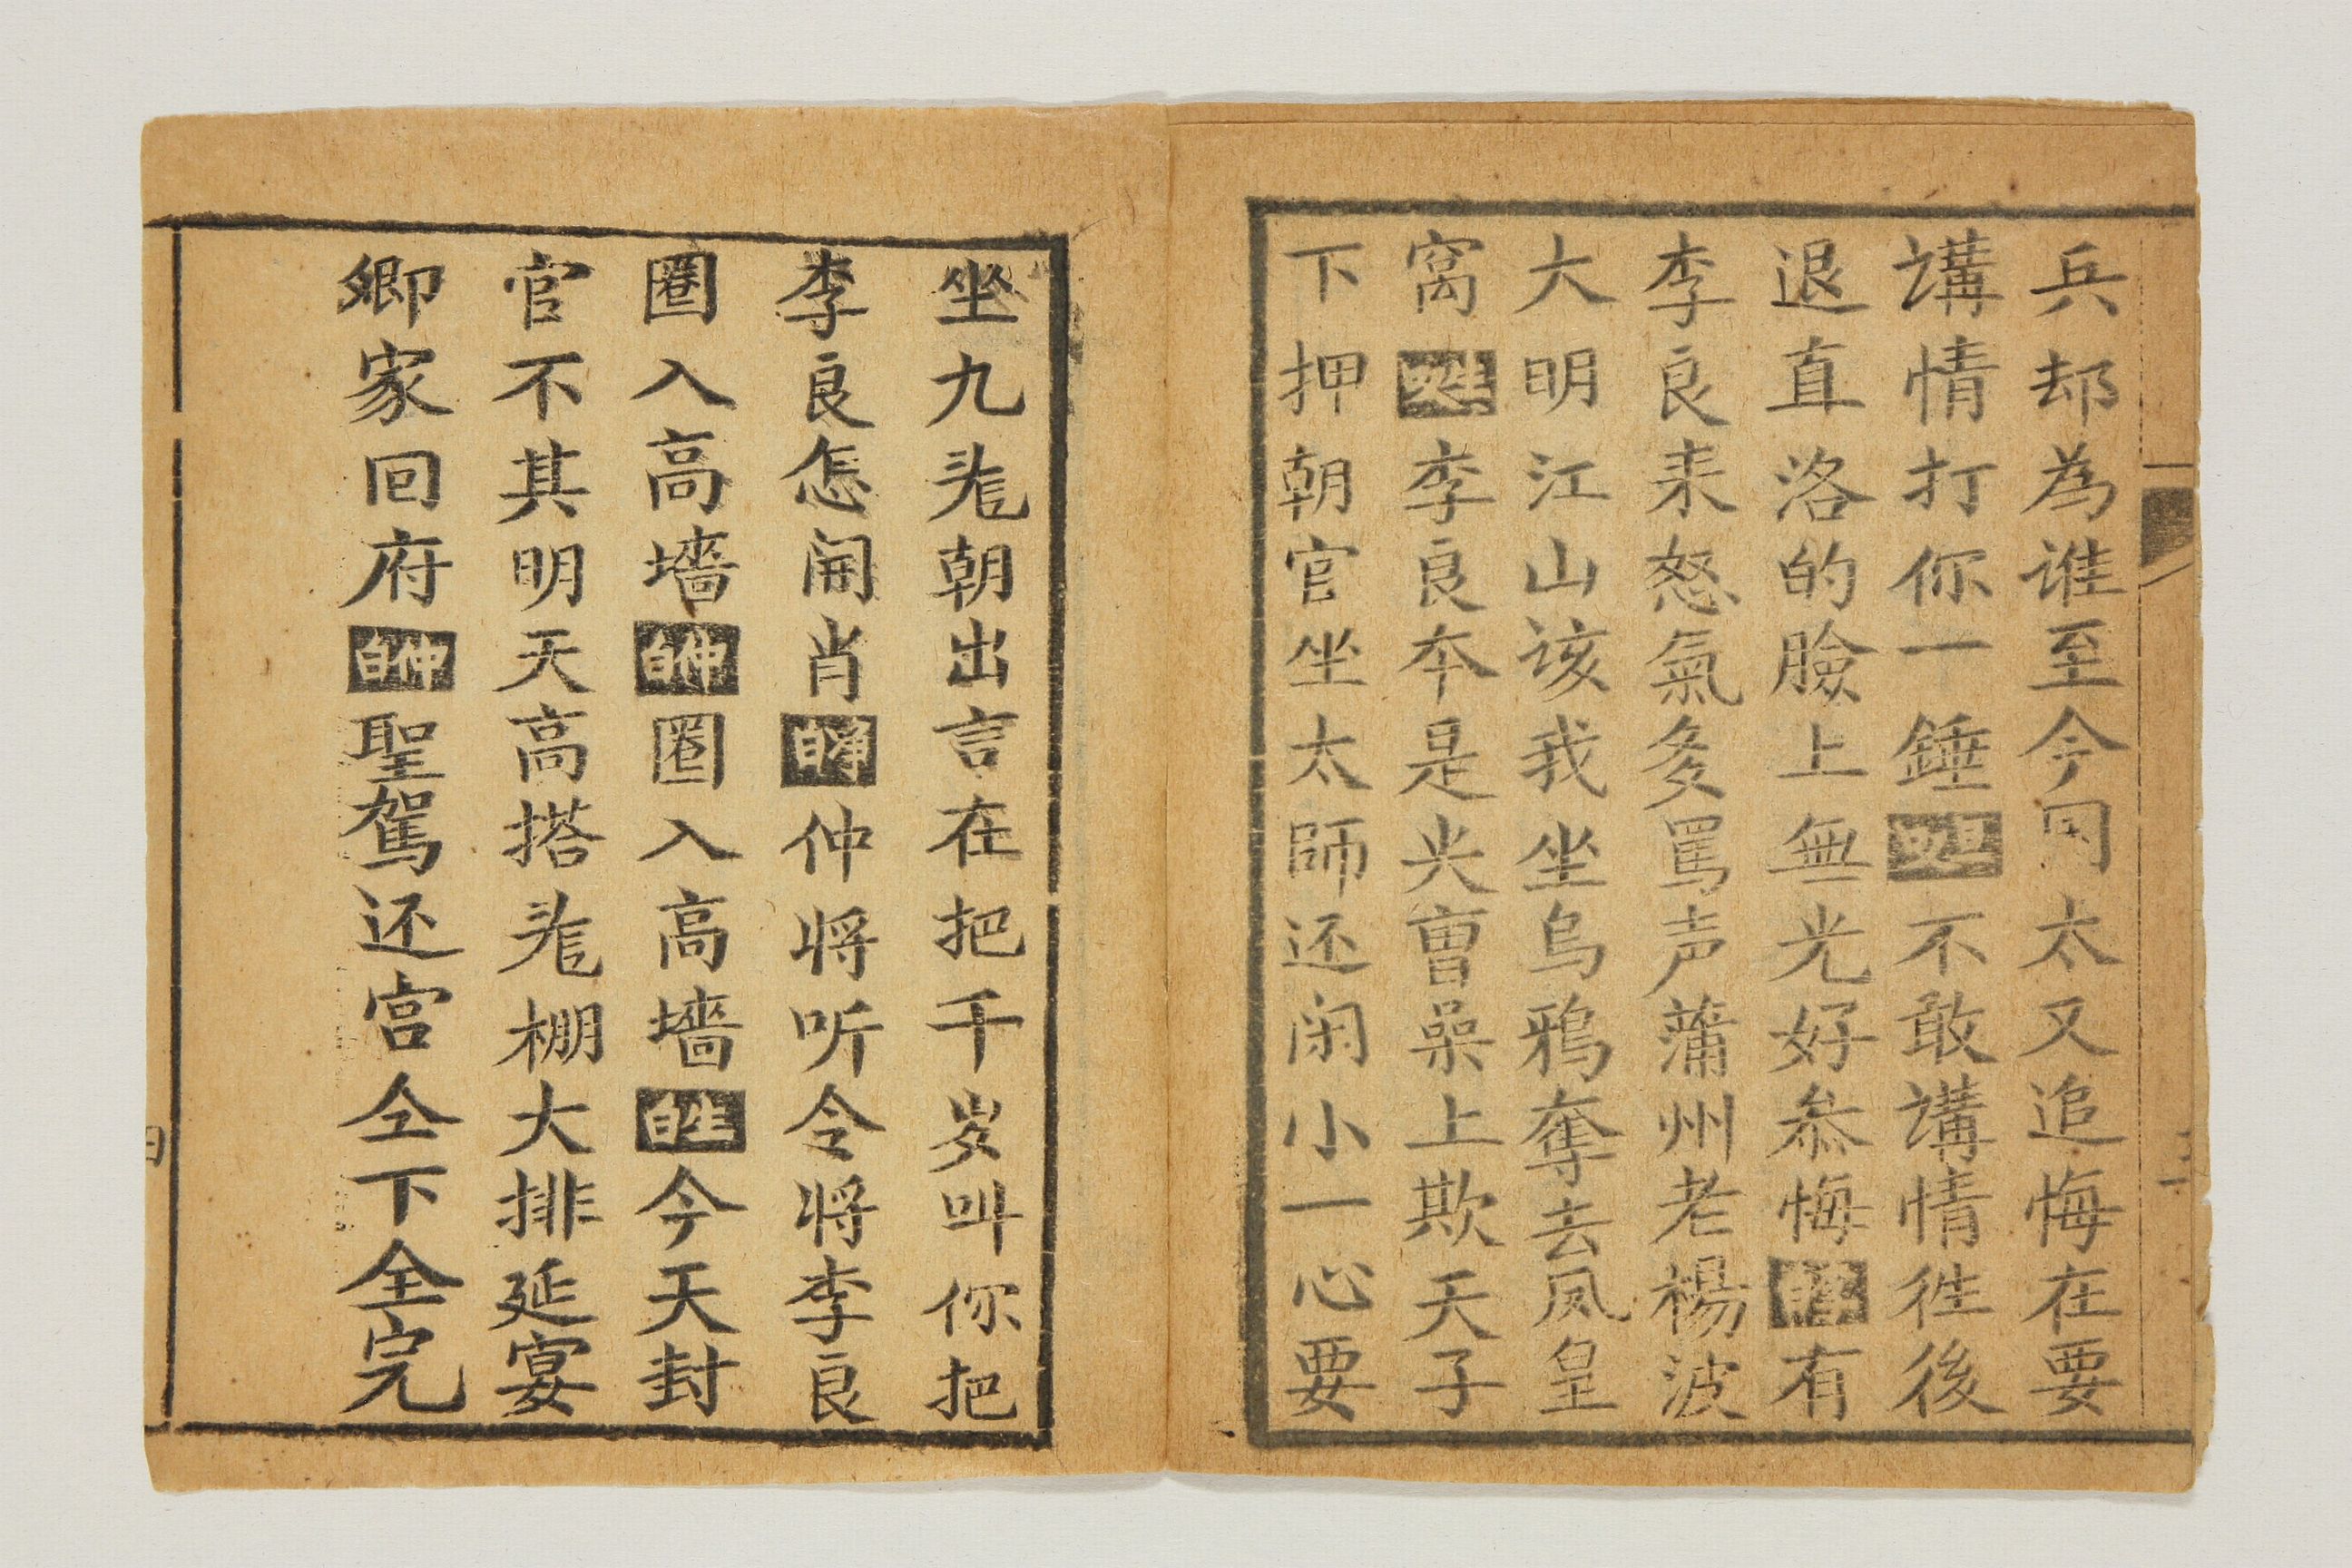 兵却為谁至今同太又追悔在要
講情打你一錘不敢講情徃後
退直洛的臉上無光好叅悔有
李良耒怒氣多罵声蒲州老楊波
大明江山该我坐烏鴉奪去凤皇
窩李良本是火曹喿上欺天子
下押朝官坐太師还闲小一心要
坐九龙朝出言在把千岁叫你把
李良怎開肖仲将听令将李良
圈入高墙白仲圈入高墙白生今天封
官不其明天高搭龙棚大排延宴
卿家回府白仲聖駕还宫仝下全完